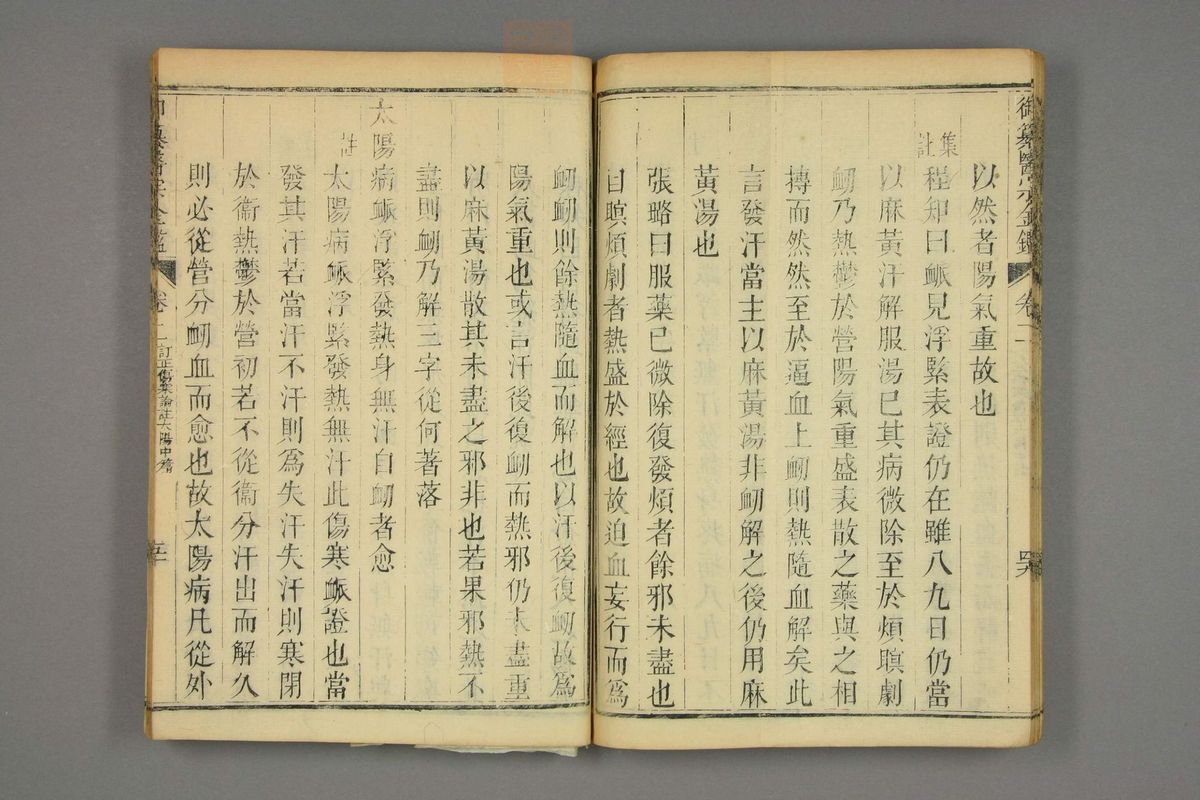 御纂醫宗金鑑 卷二
以然者陽氣重故也
集註
程知曰脈見浮緊表證仍在雖八九日仍當
以麻黃汗解服湯已其病微除至於煩瞑劇
衂乃熱鬱於營陽氣重盛表散之藥與之相
搏而然然至於逼血上衂則熱隨血解矣此
言發汗當主以麻黃湯非衂解之後仍用麻
黃湯也
張璐曰服藥已微除復發煩者餘邪未盡也
目瞑煩劇者熱盛於經也故迫血妄行而爲
衂衂則餘熱隨血而解也以汗後復衂故爲
陽氣重也或言汗後復衂而熱邪仍未盡重
以麻黃湯散其未盡之邪非也若果邪熱不
盡則衂乃解三字從何著落
太陽病脈浮緊發熱身無汗自衂者愈
註
太陽病脈浮緊發熱無汗此傷寒脈證也當
發其汗若當汗不汗則爲失汗失汗則寒閉
於衞熱鬱於營初若不從衞分汗出而解久
則必從營分衂血而愈也故太陽病凡從外
御纂醫宗金鑑 卷二 訂正傷寒論註太陽中篇